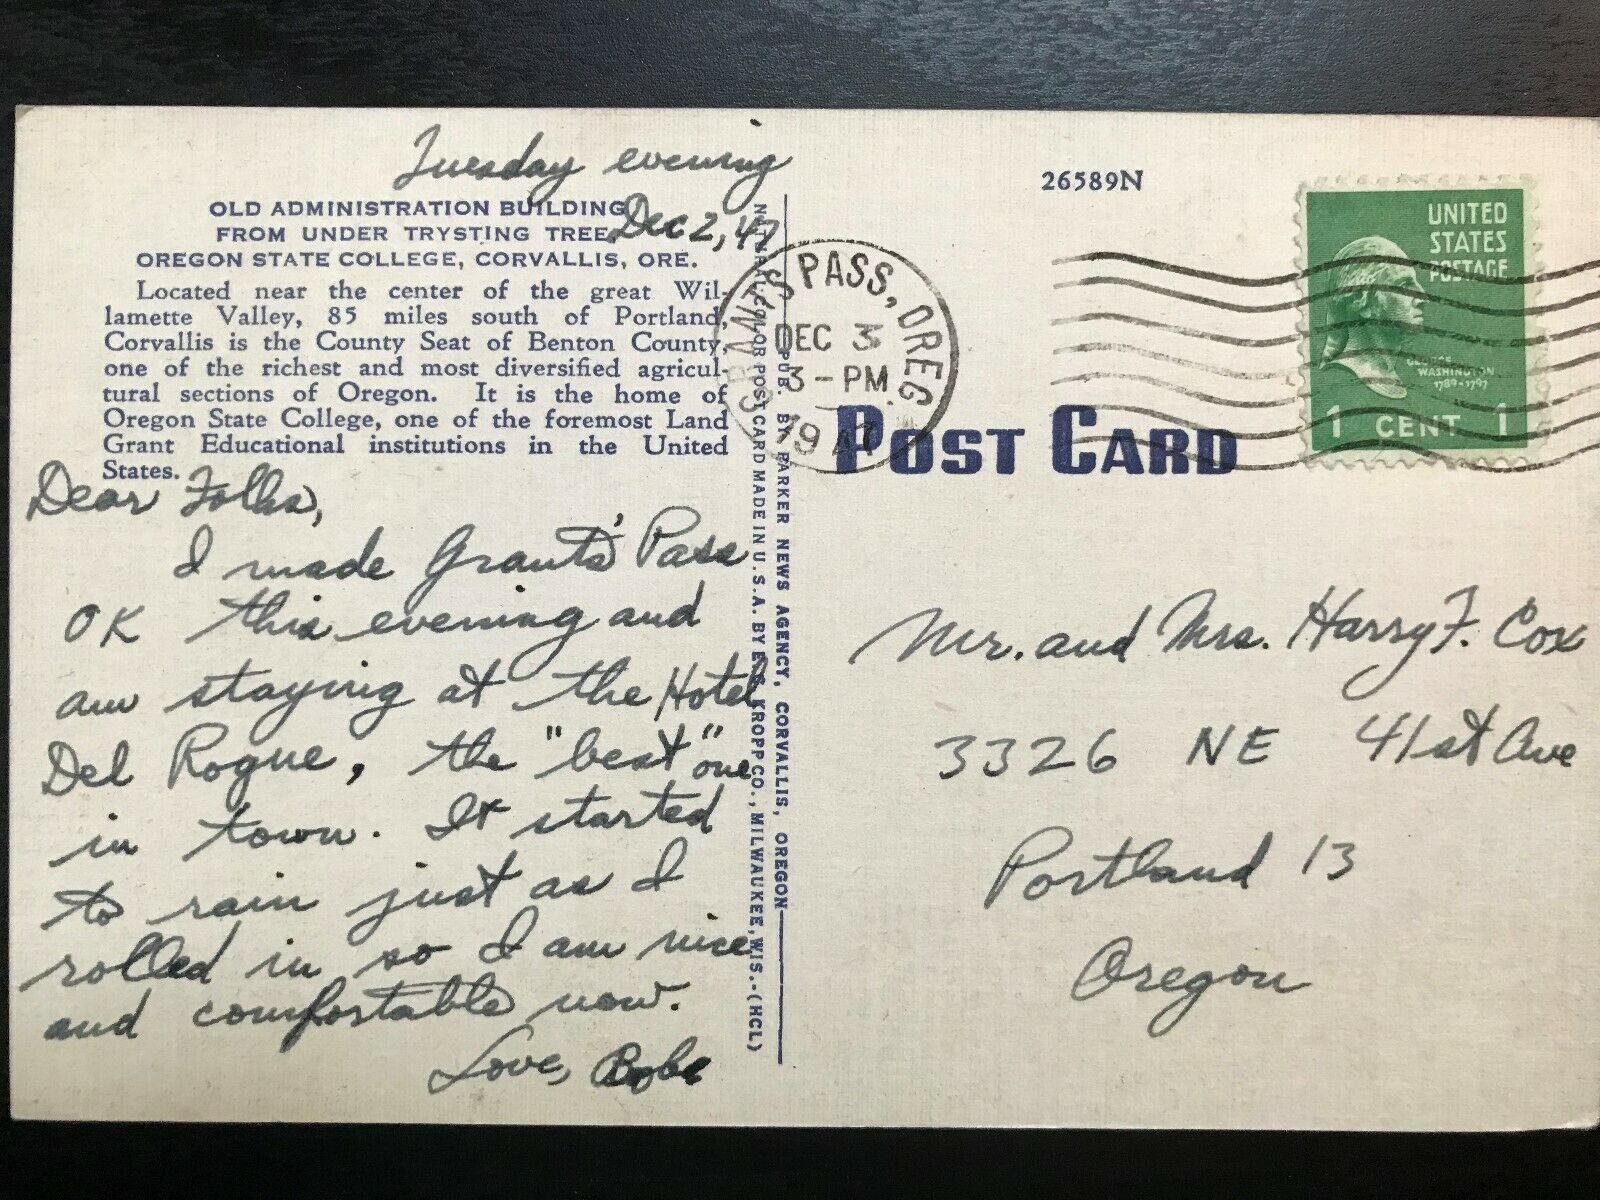 Tuesday evening
Dec 2, 47
OLD ADMINISTRATION BUILDING
FROM UNDER TRYSTING TREE
OREGON STATE COLLEGE, CORVALLIS, ORE.
Located near the center of the great Wil-
lamette Valley, 85 miles south of Portland,
Corvallis is the County Seat of Benton County,
one of the richest and most diversified agricul-
tural sections of Oregon. It is the home of
Oregon State College, one of the foremost Land
Grant Educational institutions in the United
States.
Dear Folks,
I made Grants' Pass
OK this evening and
am staying at the Hotel
Del Rogue, the "best" one
in town. It started
to rain just as I
rolled in so I am nice
and comfortable now.
Love,
PUB. BY PARKER NEWS AGENCY, CORVALLIS, OREGON
NATURAL COLOR POST CARD MADE IN U.S.A. BY E. C. KROPP CO., MILWAUKEE, WIS.-(HCL)
GRANTS PASS, OREG
DEC 3
3-PM
1947
26589N
POST CARD
UNITED
STATES
POSTAGE
GEORGE
WASHINGTON
1789-1797
1 CENT 1
Mr. and Mrs. Harry F. Cox
3326 NE 41st Ave
Portland 13
Oregon